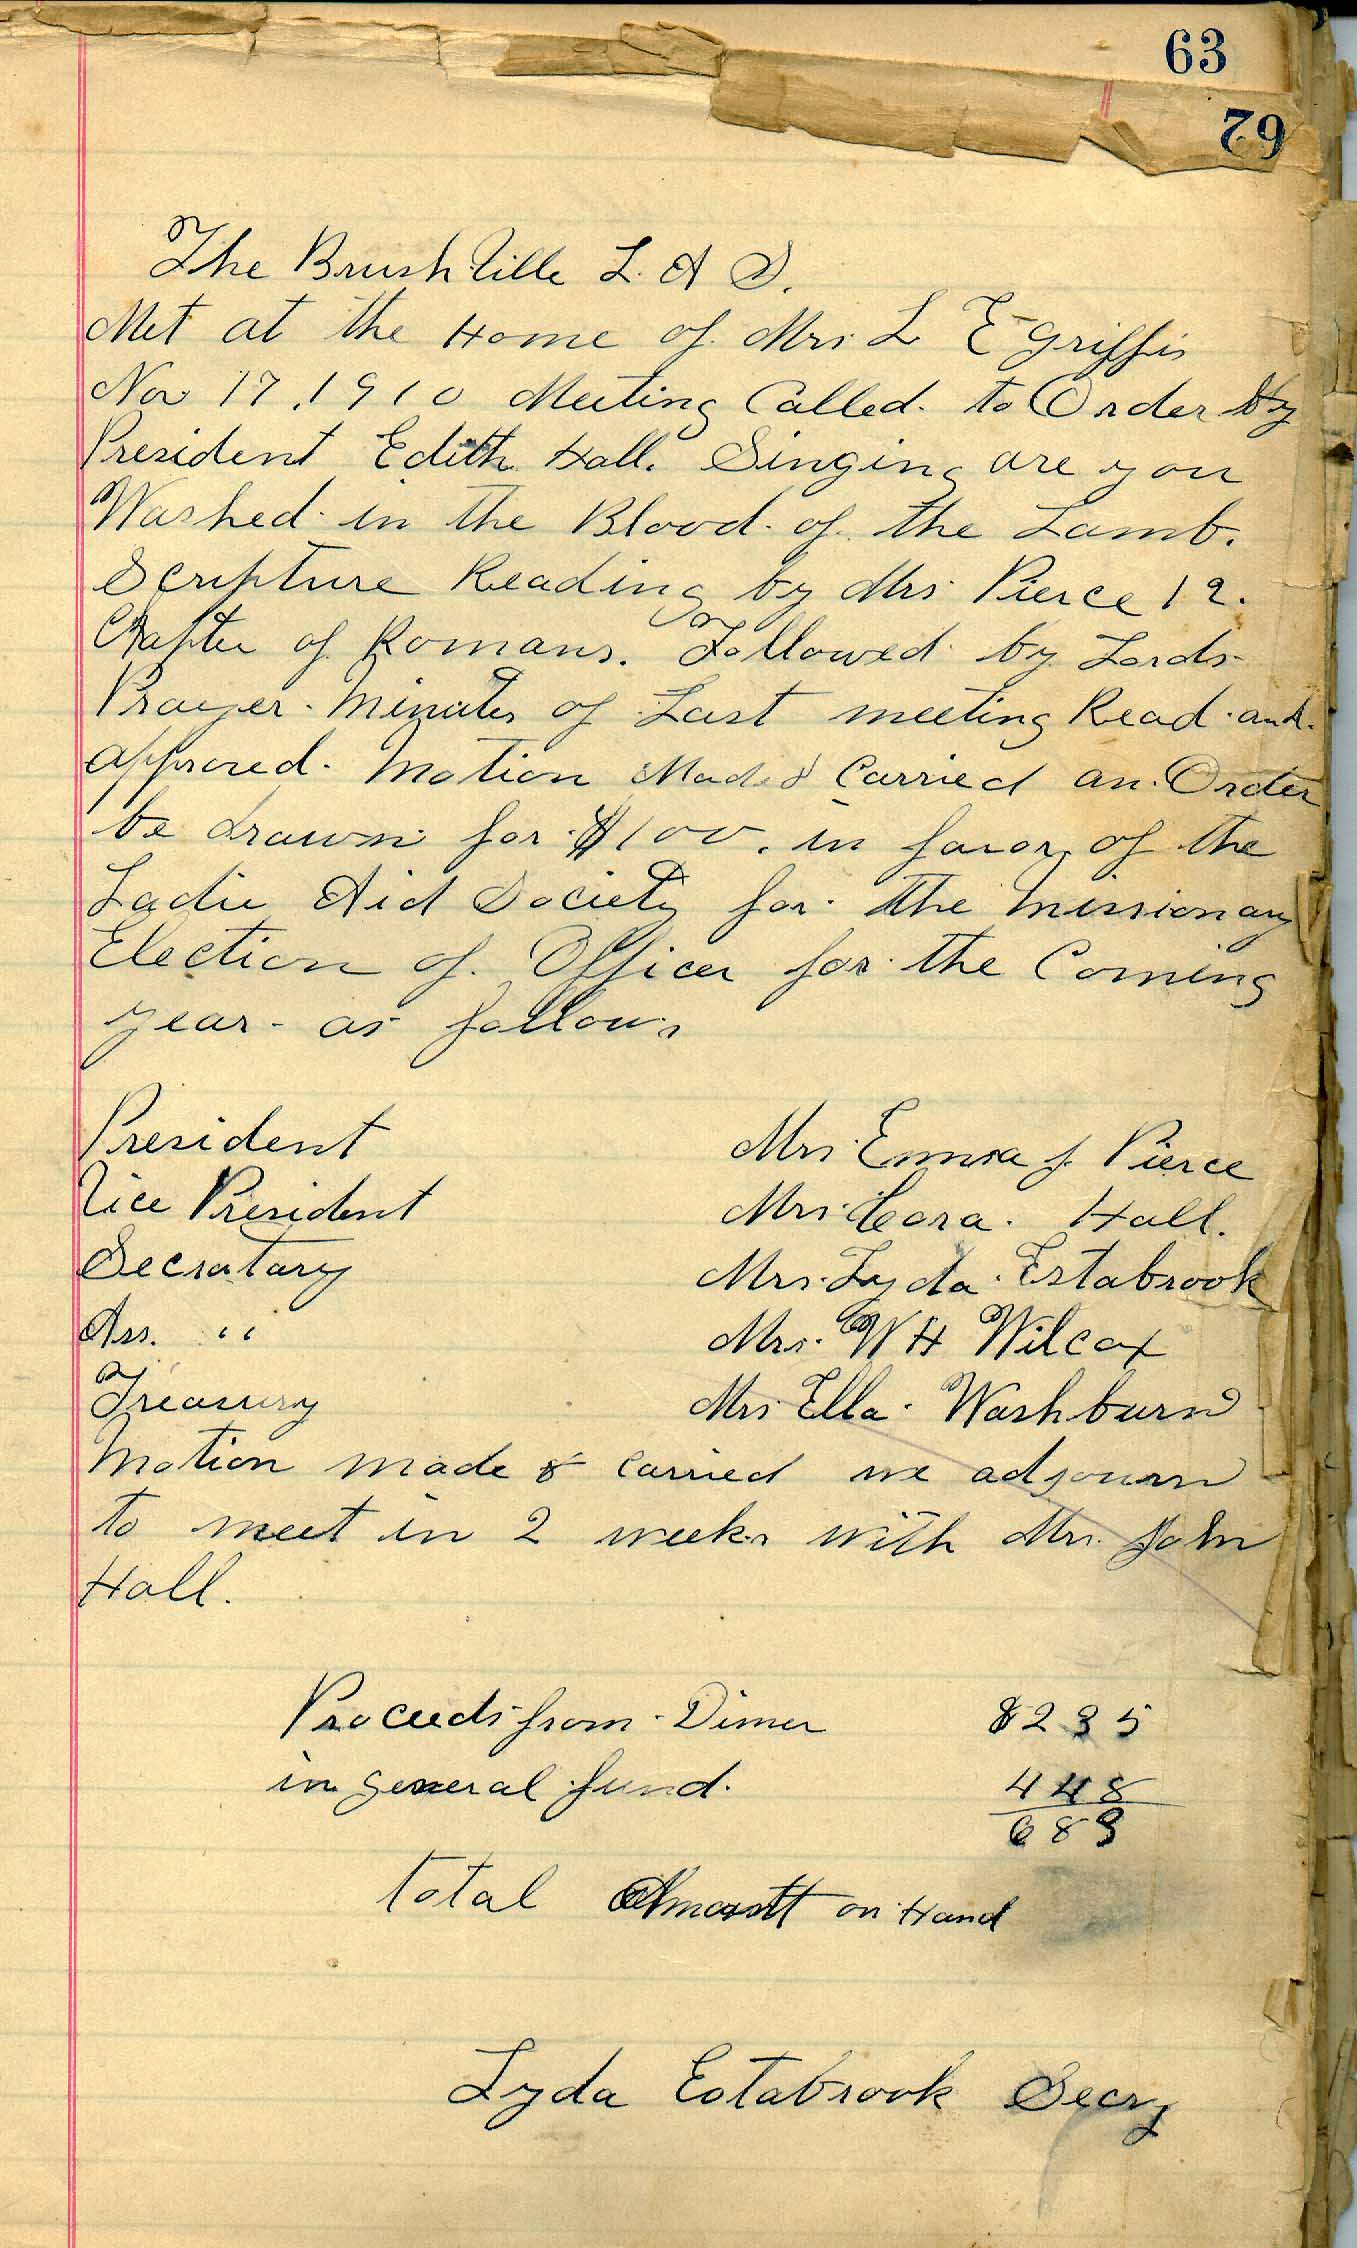 63
79
The Brushville L. A S.
Met at the Home of Mrs L E Griffis
Nov 17, 1910 Meeting Called to Order by
President Edith Hall. Singing are you
Washed in the Blood of the Lamb.
Scripture Reading by Mrs Pierce 12.
Chapter of Romans. Followed by Lords
Prayer. Minutes of Last meeting Read and
approved. Motion Made & Carried an Order
be drawn for $100. in favor of the
Ladie Aid Society for the Missionary
Election of Officer for the Coming
year as follows
President Mrs Emma J. Pierce
Vice President Mrs Cora Hall.
Secratary Mrs. Lyda Estabrook
Ass. " Mrs. W H Wilcox
Treasury Mrs Ella Washburn
Motion made & carried we adjourn
to meet in 2 weeks with Mrs. John
Hall.
Proceeds from Dinner $235
in general fund. 448
683
total Amount on Hand
Lyda Estabrook Secry